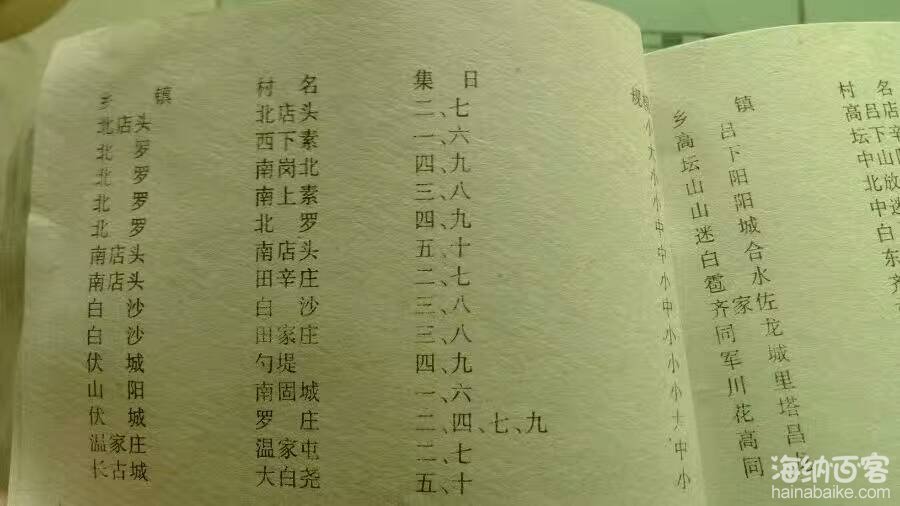 乡 镇 村 名 集 日 规
北店头 北店头 二、七 小
北 罗 西下素 一、六 大
北 罗 南岗北 四、九 小
北 罗 南上素 三、八 小
北 罗 北 罗 四、九 中
南店头 南店头 五、十 中
南店头 田辛庄 二、七 小
白 沙 白 沙 三、八 中
白 沙 田家庄 三、八 小
伏 城 勺堤 四、九 小
山 阳 南固城 一、六 小
伏 城 罗 庄 二、四、七、九 大
温家庄 温家屯 二、七 中
长古城 大白尧 五、十 小
乡 镇 村 名
高 吕 高吕店
坛 下 坛下辛
山 阳 中山
山 阳 北放
迷 城 中迷
白 合 白
雹 水 东
齐家佐 齐
同 龙
军 城
川 里
花 塔
高 昌
同
海纳百客
hainabaike.com